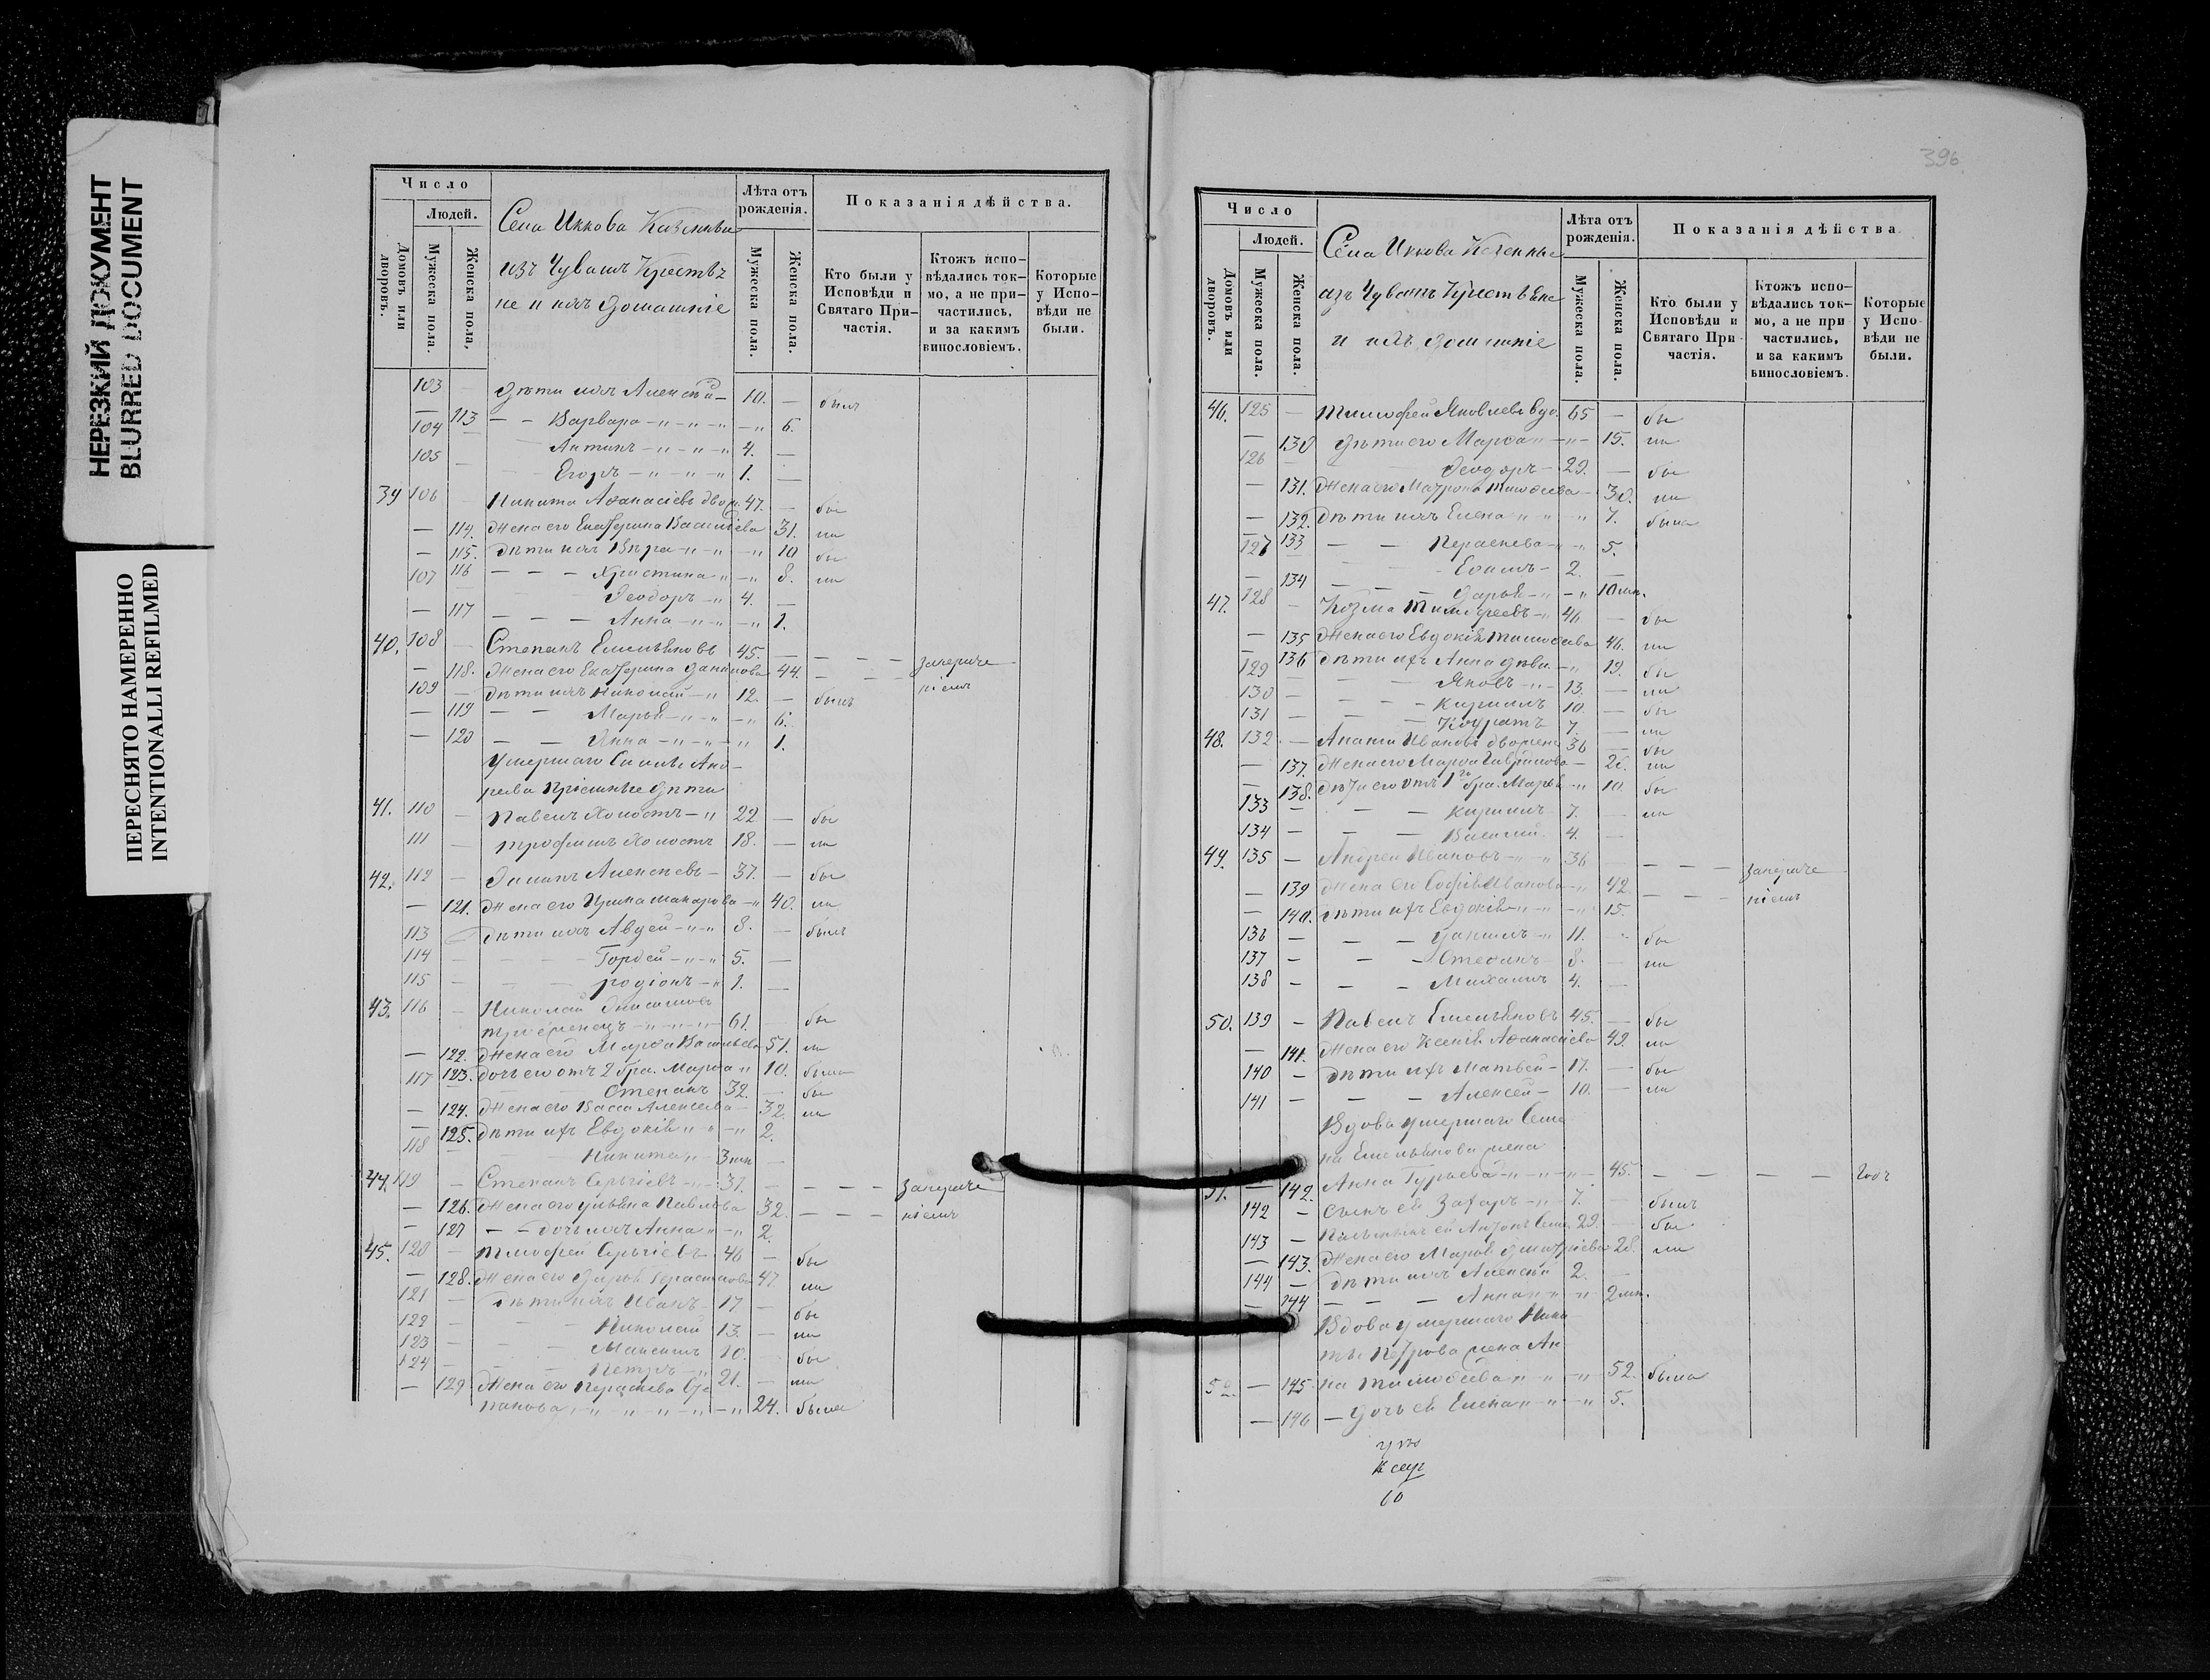 НЕРЕЗКИЙ ДОКУМЕНТ
BLURRED DOCUMENT
ПЕРЕСНЯТО НАМЕРЕННО
INTENTIONALLI REFILMED
Число
Людей.
Домовъ или дворовъ.
Мужеска пола.
Женска пола,
Села Иккова Казенные
изъ Чувашъ Крестья
не и ихъ домашніе
Лѣта отъ рожденія.
Мужеска пола.
Женска пола.
Показанія дѣйства.
Кто были у Исповѣди и Святаго Причастія.
Ктожъ испо-вѣдались ток-мо, а не при-частились, и за какимъ винословіемъ.
Которые у Испо-вѣди не были.
103 — дѣти ихъ Алексѣй — 10. — былъ
— 113 — — Варвара — „ — „ — „ — „ 6.
104 Антипъ — „ — „ — „ 4. —
105 — — — Егоръ — „ — „ — „ 1. —
39 106 — Никита Аѳанасіевъ двож. 47. — бы
— 114. Жена его Екатерина Васильева 31. ла
— 115. Дѣти ихъ Вѣра — „ — „ — „ 10 бы
116 — — — Христина „ — „ 8. ла
107 Ѳеодоръ — „ 4. —
— 117 — — — Анна — „ — „ — „ 1.
40. 108 — Степанъ Емельяновъ 45. — — — — за нераче
— 118. Жена его Екатерина Данилова 44. — — — ніемъ
109 — Дѣти ихъ Николай — „ 12. — былъ
— 119 — — Марья — „ — „ — „ 6.
— 120 — — Анна — „ — „ — „ 1.
Умершаго Силы Анд-
реева пріемные дѣти
41. 110 — Павелъ Холостъ — „ 22 — бы
111 — Трофимъ Холостъ 18. — ли
42. 112 — Алексѣевъ — 37. — бы
— 121. Жена его Ирина Макарова — „ 40. ли
113 Дѣти ихъ Авдей — „ — „ 8. — былъ
114 — — — — Гордей — „ — „ 5. —
115 — — — Родіонъ — „ 1. —
43. 116 — Николай
троеженецъ — „ — „ — „ — 61. — бы
— 122. Жена его Марѳа Васильева 51. ли
123. Дочь его отъ 2 бра. Марѳа „ 10. была
117 — — Степанъ 32. — бы
— 124. Жена его Васса Алексѣева — 32. ли
— 125. Дѣти ихъ Евдокія „ — „ — „ 2.
118 — — — Никита „ — 3 мѣ —
44. 119 — Степанъ Сергіевъ — „ — 37. — — — — за нераче
— 126. Жена его Ульяна Павлова 32. — — — ніемъ
— 127 — — дочь ихъ Анна „ — „ 2.
45. 120 — Тимоѳей Сергіевъ 46 — бы
— 128. Жена его Дарья Герасимова 47 ли
121 — Дѣти ихъ Иванъ — 17 — бы
122 — — — Николай 13. — ли
123 — — — Максимъ 10. — бы
124 — — — Петръ — „ 21. — ли
— 129 Жена его Параскева Сте
панова „ — „ — „ — „ — „ — „ 24. была
396
Число
Людей.
Домовъ или дворовъ.
Мужеска пола.
Женска пола.
Села Иккова Казенные
изъ Чувашъ Крестьяне
и ихъ домашніе
Лѣта отъ рожденія.
Мужеска пола.
Женска пола.
Показанія дѣйства
Кто были у Исповѣди и Святаго При частія.
Ктожъ испо-вѣдались ток-мо, а не при частились, и за какимъ винословіемъ.
Которые у Испо вѣди не были.
46. 125 — Тимоѳей Яковлевъ вдо. 65 — бы
— 130 Дѣти его Марѳа „ — „ — 15. ли
126 — Ѳеодоръ — 29. — бы
— 131. Жена его Матрона Тимоѳеева — 30. ли
— 132. Дѣти ихъ Елена „ „ „ 7. была
— 133 — — Параскева — „ „ 5.
127 — — — Еѳимъ — 2. —
— 134 — — — Дарья — „ — „ 10 мѣс.
47. 128 — Козма Тимоѳеевъ — „ 46 — бы
— 135 Жена его Евдокія Тимоѳеева 46. ли
— 136 Дѣти ихъ Анна дѣви. — „ 19. бы
129 — — — Яковъ — „ — 13. — ли
130 — — — — Кирилъ 10. — бы
131 — — — — Кодратъ 7. — ли
48. 132 — Иванов двоежене 36 — бы
— 137. Жена его Марѳа Гаврилова — 26. ли
— 138. Дѣти его отъ 1го бра. Марья „ 10. бы
133 — — — Кирилъ 7. — ли
134 — — — Василій 4. —
49. 135 — Андрей Ивановъ — „ — „ 36 — — — — за нераче
— 139 Жена его Софія Иванова — „ 42 — — — ніемъ
— 140. Дѣти ихъ Евдокія — „ — „ — „ 15.
136 — — — Данилъ — „ 11. — „ бы
137 — — — Стефанъ 8. — ли
138 — — — Михаилъ 4. —
50. 139 — Павелъ Емельяновъ 45. — бы
— 141. Жена его Ксенія Аѳанасіева 49. ли
140 — Дѣти ихъ Матвей — 17. — бы
141 — — — Алексей — 10. — ли
Вдова умершаго Семе
на Емельянова жена
51. — 142. Анна Гурьева — „ — „ — „ — 45. — — — — Годъ
142 — Сынъ ея Захаръ — „ — 7. — былъ
143 — Пасынокъ ея Антонъ Семе 29. — бы
— 143. Жена его Марья Дмитріева 28. ли
144 — Дѣти ихъ Алексѣй 2. —
— 144 — — — Анна „ — „ 2 мѣс.
Вдова умершаго Ники
ты Петрова жена Ан
52. — 145. на Тимоѳеева „ — „ — „ 52. была
— 146 — Дочь ея Елена „ — „ — „ 5.